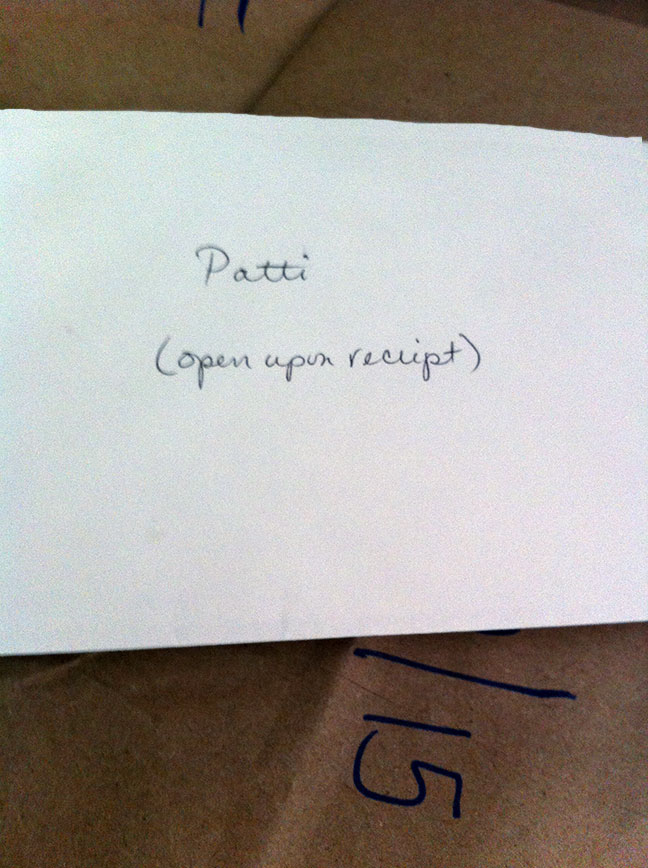 Patti
(open upon receipt)
/15